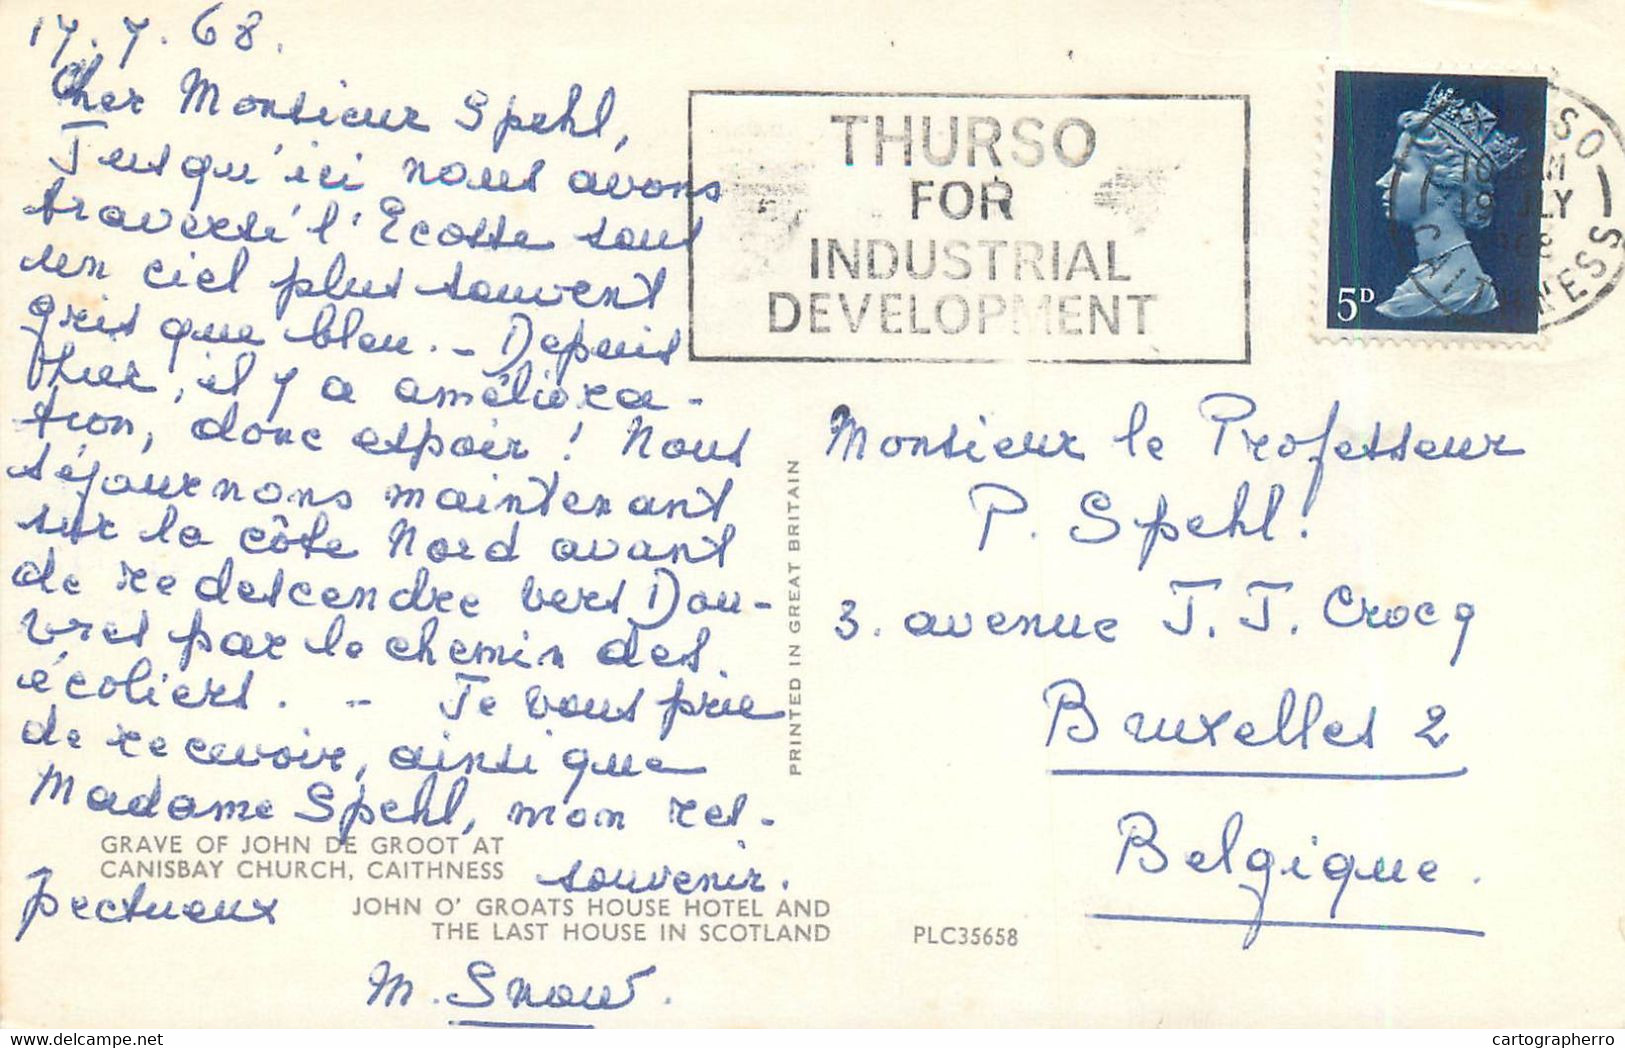 17.7.68.
Cher Monsieur Spehl,
Jusqu'ici nous avons
traversé l'Ecosse sous
un ciel plus souvent
gris que bleu. - Depuis
hier, il y a améliora-
tion, donc espoir ! Nous
séjournons maintenant
sur la côte Nord avant
de redescendre vers Dou-
vres par le chemin des
écoliers. - Je vous prie
de recevoir, ainsi que
Madame Spehl, mon res-
pectueux souvenir.
M. Snow.
GRAVE OF JOHN DE GROOT AT
CANISBAY CHURCH, CAITHNESS
JOHN O' GROATS HOUSE HOTEL AND
THE LAST HOUSE IN SCOTLAND
PLC35658
PRINTED IN GREAT BRITAIN
THURSO
FOR
INDUSTRIAL
DEVELOPMENT
5D
19 JLY
CAITHNESS
Monsieur le Professeur
P. Spehl.
3. avenue J. J. Crocq
Bruxelles 2
Belgique.
cartographerro